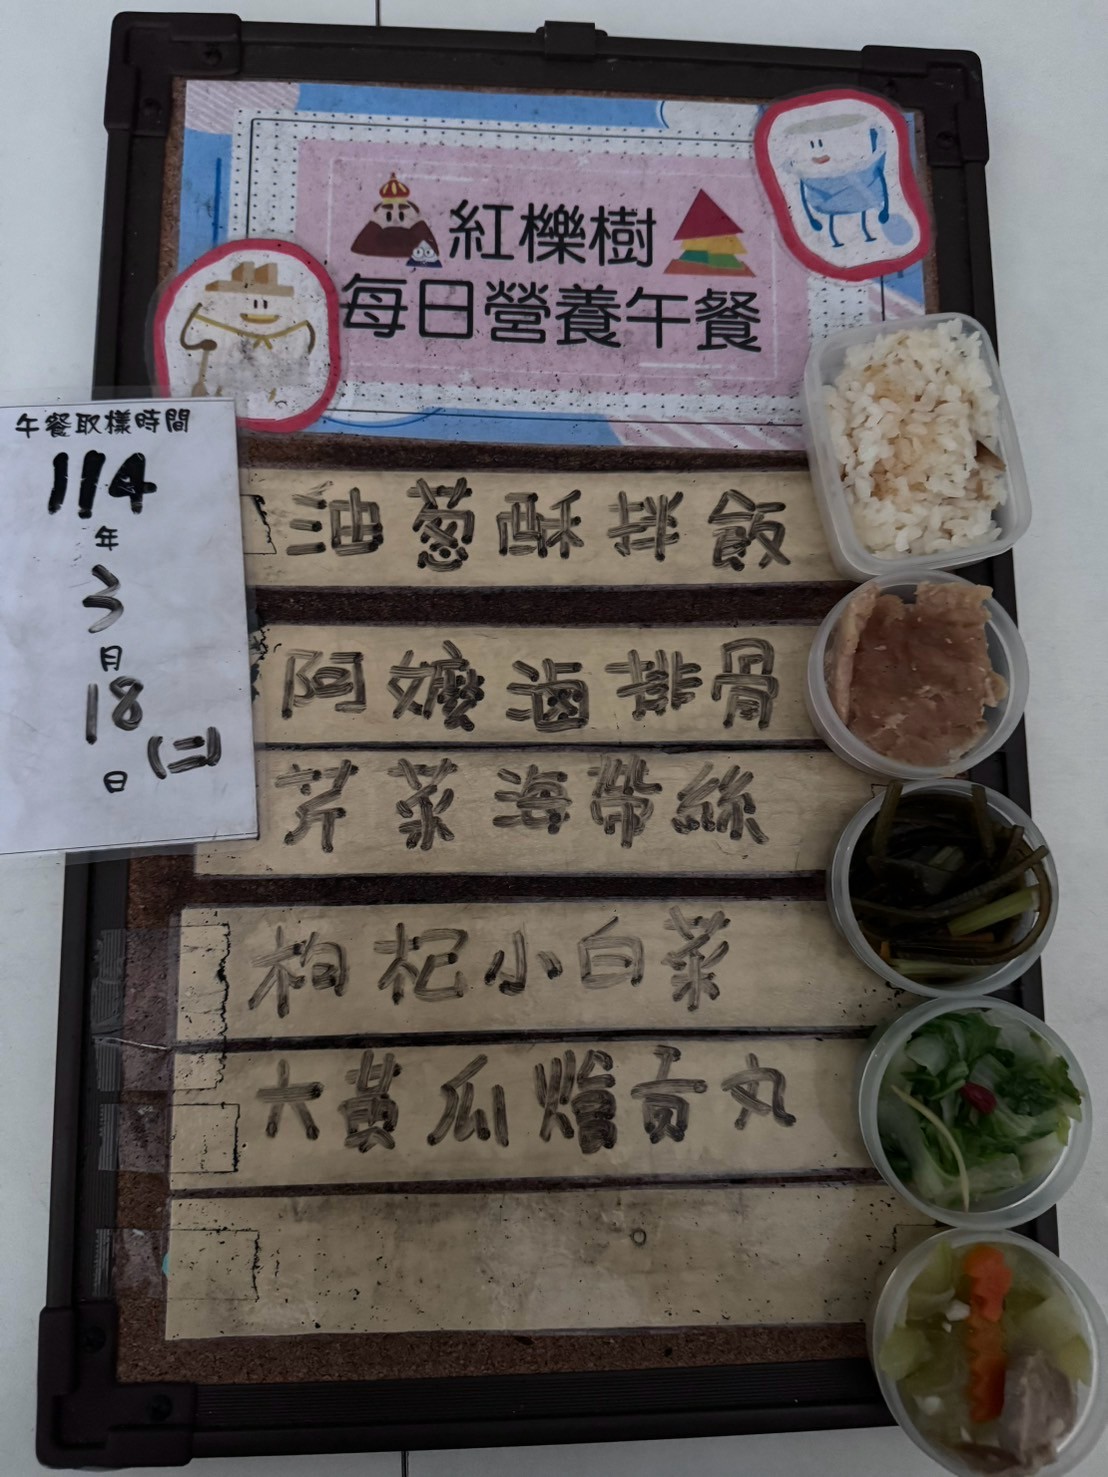 紅櫟樹
每日營養午餐
午餐取樣時間
114
年
3
月
18
日 (二)
油蔥酥拌飯
阿嬤滷排骨
芹菜海帶絲
枸杞小白菜
大黃瓜燴貢丸